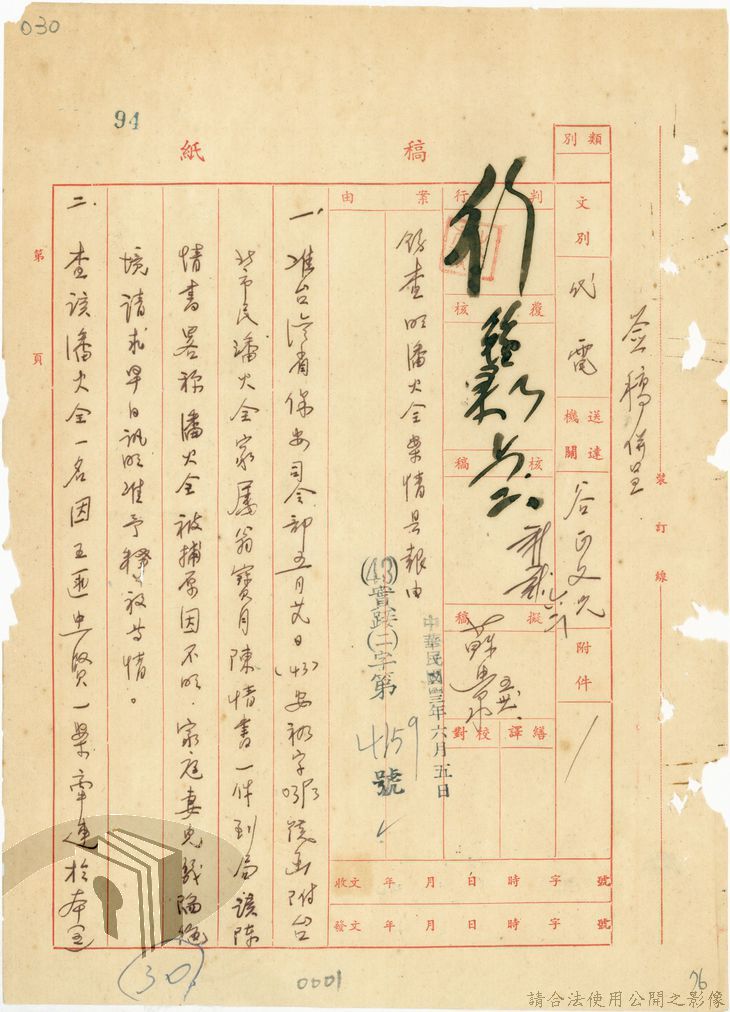 030
94
稿
紙
簽稿併呈
裝訂線
類別
文別
代電
送達機關
谷正文先
附件
判行
行
覆核
核稿
擬稿
繕譯
校對
案由
飭查明潘火全案情具報由
中華民國四十三年六月五日
(43)實踐(二)字第
4159
號
收文 年 月 日 時 字 號
發文 年 月 日 時 字 號
一、准台灣省保安司令部五月廿日(43)安祕字 號函附台
北市民潘火全家屬翁寶月陳情書一件到局該陳
情書畧称潘火全被捕原因不明,家庭妻兒幾陷絕
境請求早日訊明准予釋放等情。
二、查該潘火全一名因王匪忠賢一案牽連於本
第 頁
(30)
0001
76
請合法使用公開之影像